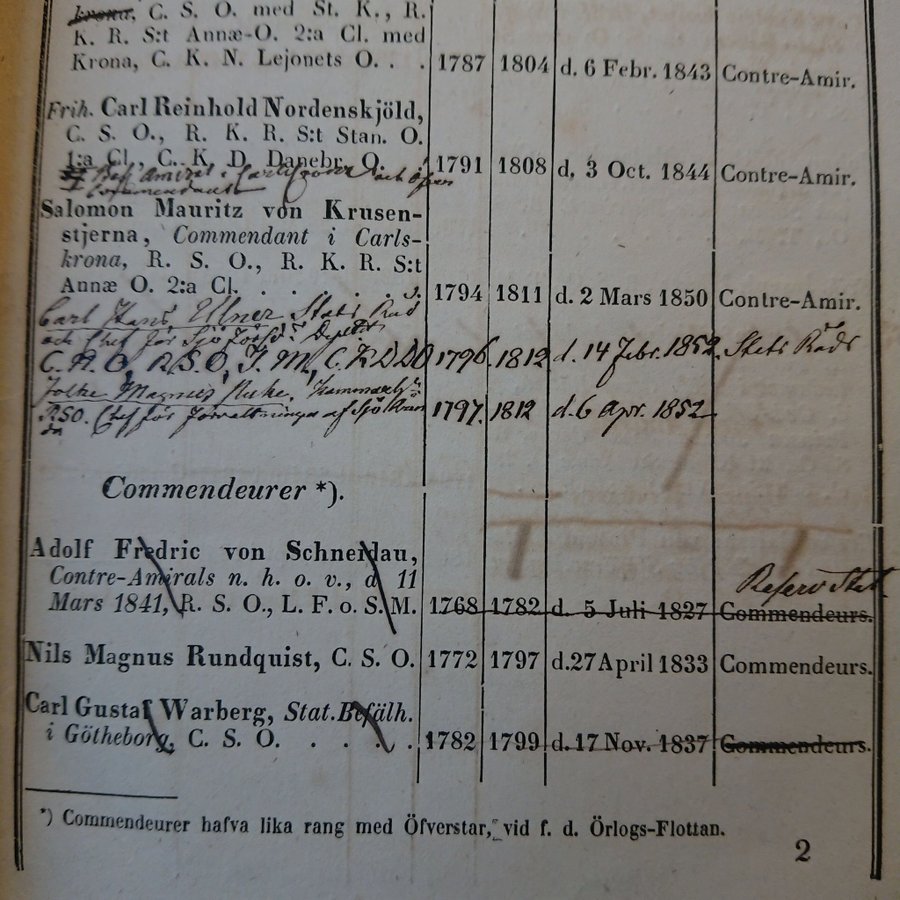 krona, C. S. O. med St. K., R.
K. R. S:t Annæ-O. 2:a Cl. med
Krona, C. K. N. Lejonets O. . . 1787 1804 d. 6 Febr. 1843 Contre-Amir.
Frih. Carl Reinhold Nordenskjöld,
C. S. O., R. K. R. S:t Stan. O.
1:a Cl., C. K. D. Danebr. O. . 1791 1808 d. 3 Oct. 1844 Contre-Amir.
Bef. amiral i Carlscrona och
Commendant
Salomon Mauritz von Krusen-
stjerna, Commendant i Carls-
krona, R. S. O., R. K. R. S:t
Annæ O. 2:a Cl. . . . . . . 1794 1811 d. 2 Mars 1850 Contre-Amir.
Carl Hans Ullner Stats Råd
och Chef för Sjö
C. N. O, R.S.O, F. M, C. K D DO 1796. 1812 d. 14 Febr. 1852. Stats Råds
Magnus
RSO. Chef för Förvaltningen af Sjö 1797. 1812 d. 6 Apr. 1852
Commendeurer *).
Adolf Fredric von Schneidau,
Contre-Amirals n. h. o. v., d. 11
Reserv Stat.
Mars 1841, R. S. O., L. F. o. S. M. 1768 1782 d. 5 Juli 1827 Commendeurs.
Nils Magnus Rundquist, C. S. O. 1772 1797 d. 27 April 1833 Commendeurs.
Carl Gustaf Warberg, Stat. Befälh.
i Götheborg, C. S. O. . . . . . 1782 1799 d. 17 Nov. 1837 Commendeurs.
*) Commendeurer hafva lika rang med Öfverstar, vid f. d. Örlogs-Flottan.
2